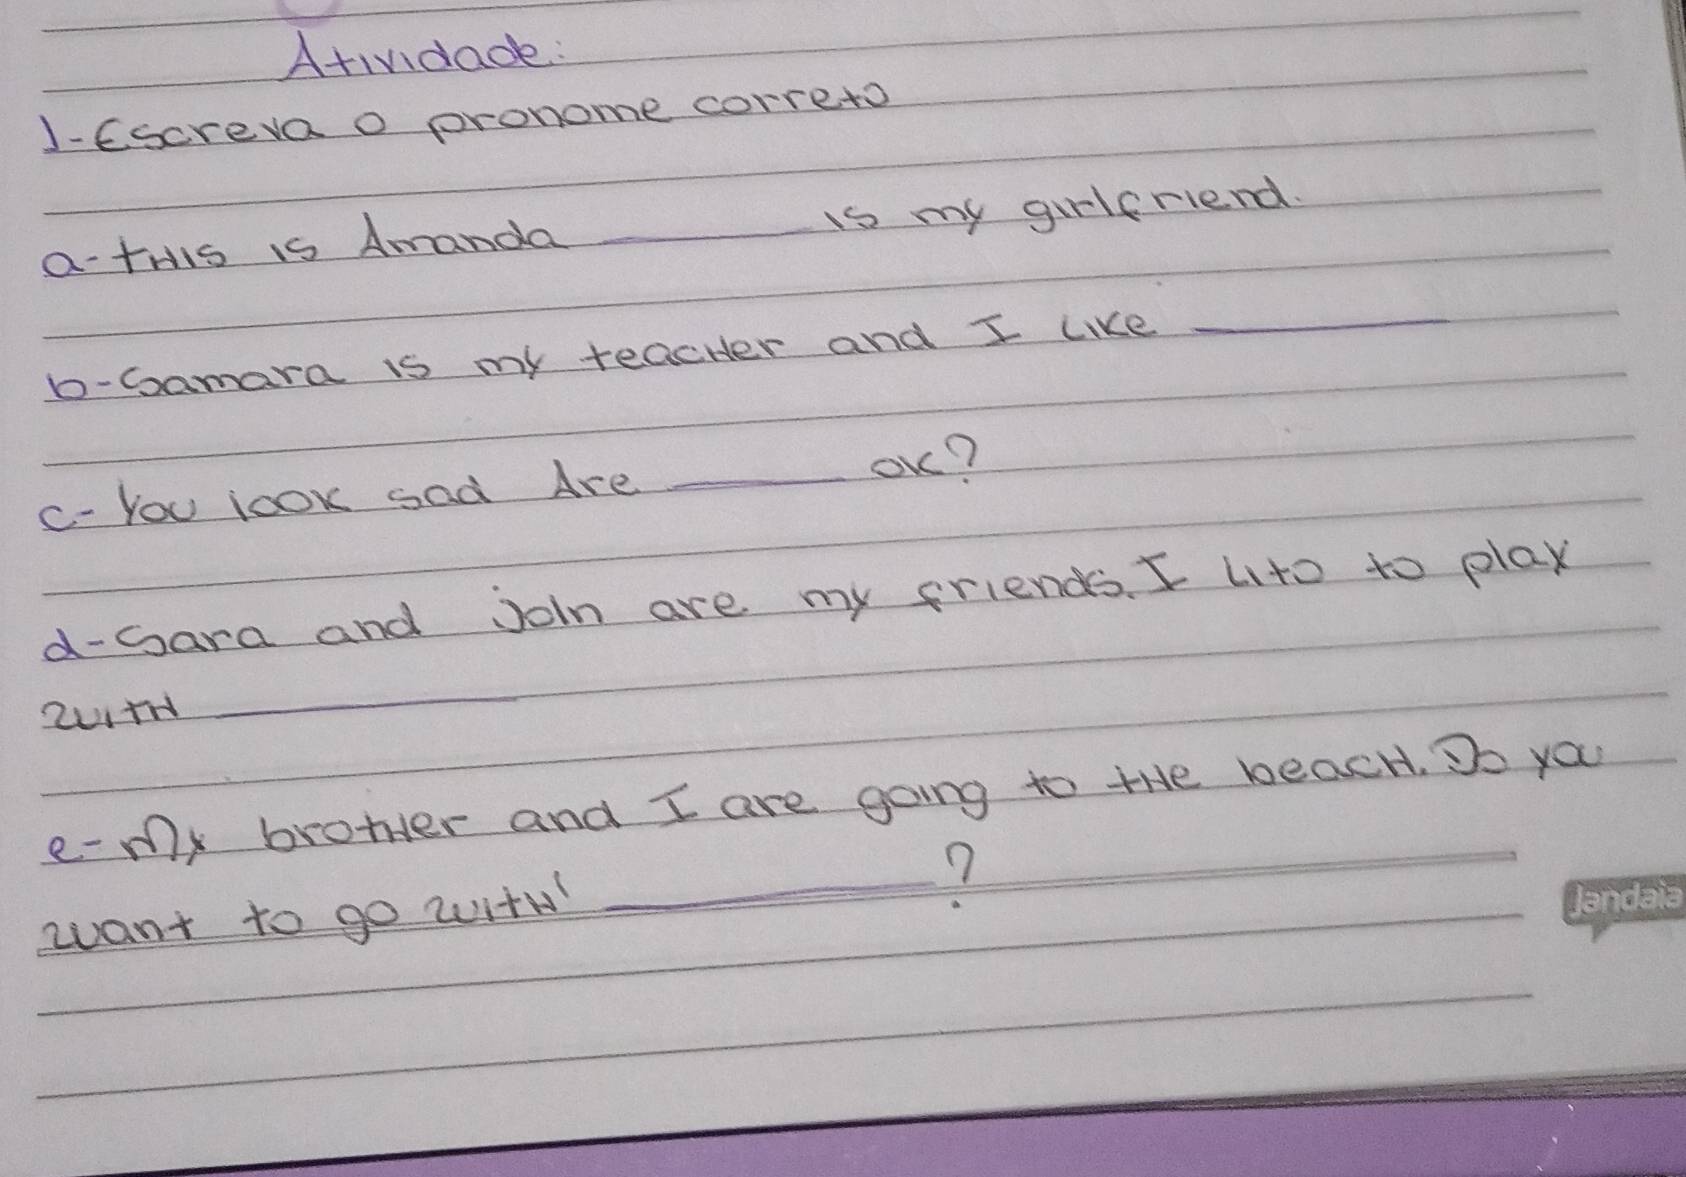 Atividade:
1-Escreva o pronome correto
a-tHis is Amanda ______ is my girlfriend.
b-Samara is my teacHer and I Like ______
c-You look sad Are ______ ok?
d-Sara and join are my friends. I Lito to play
witH ______
e-My brotHer and I are going to tHe beacH. Do you
want to go witH' ______?
Jandaia